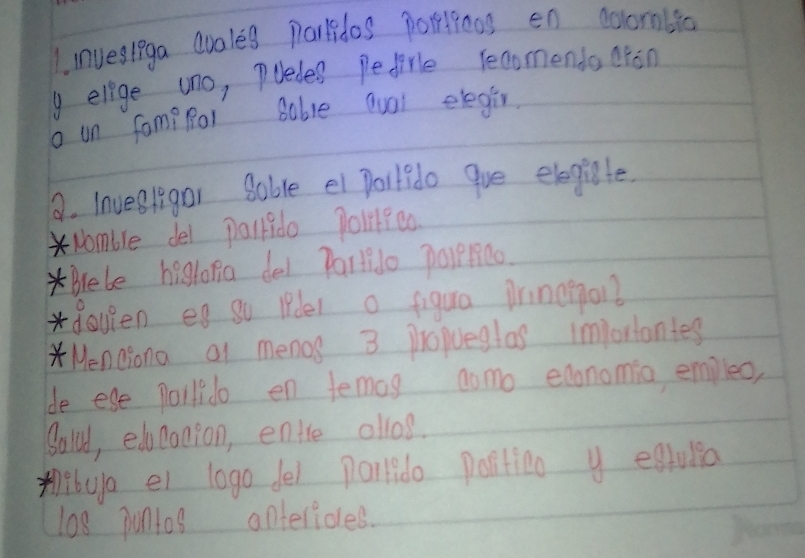 1. Investiga cuales partidos politicos en colombia
y elige uno, puedes pedirle recomendacion
a un familiar sobre cual elegir.
2. Investigar sobre el partido que elegiste.
*Nombre del partido politico.
*Brebe historia del partido politico.
*¿quien es su lider o figura principal?
*Menciona al menos 3 propuestas importantes
de ese partido en temas como economia, empleo,
salud, educacion, entre otros.
*Dibuja el logo del partido politico y estudia
los puntos anteriores.